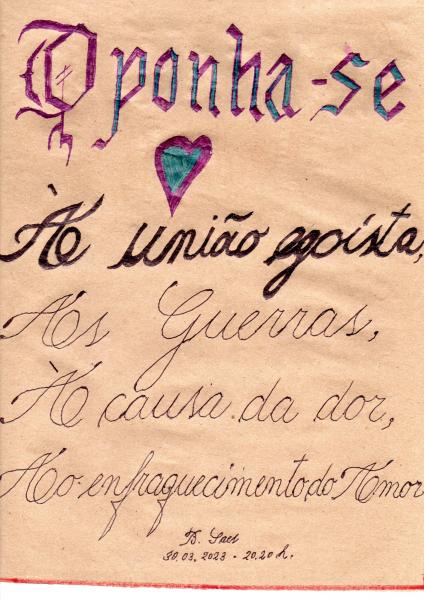 Oponha-se
À união egoísta,
As Guerras,
À causa da dor,
Ao enfraquecimento do Amor
B. Saes
30.03.2023 - 20.20 h.